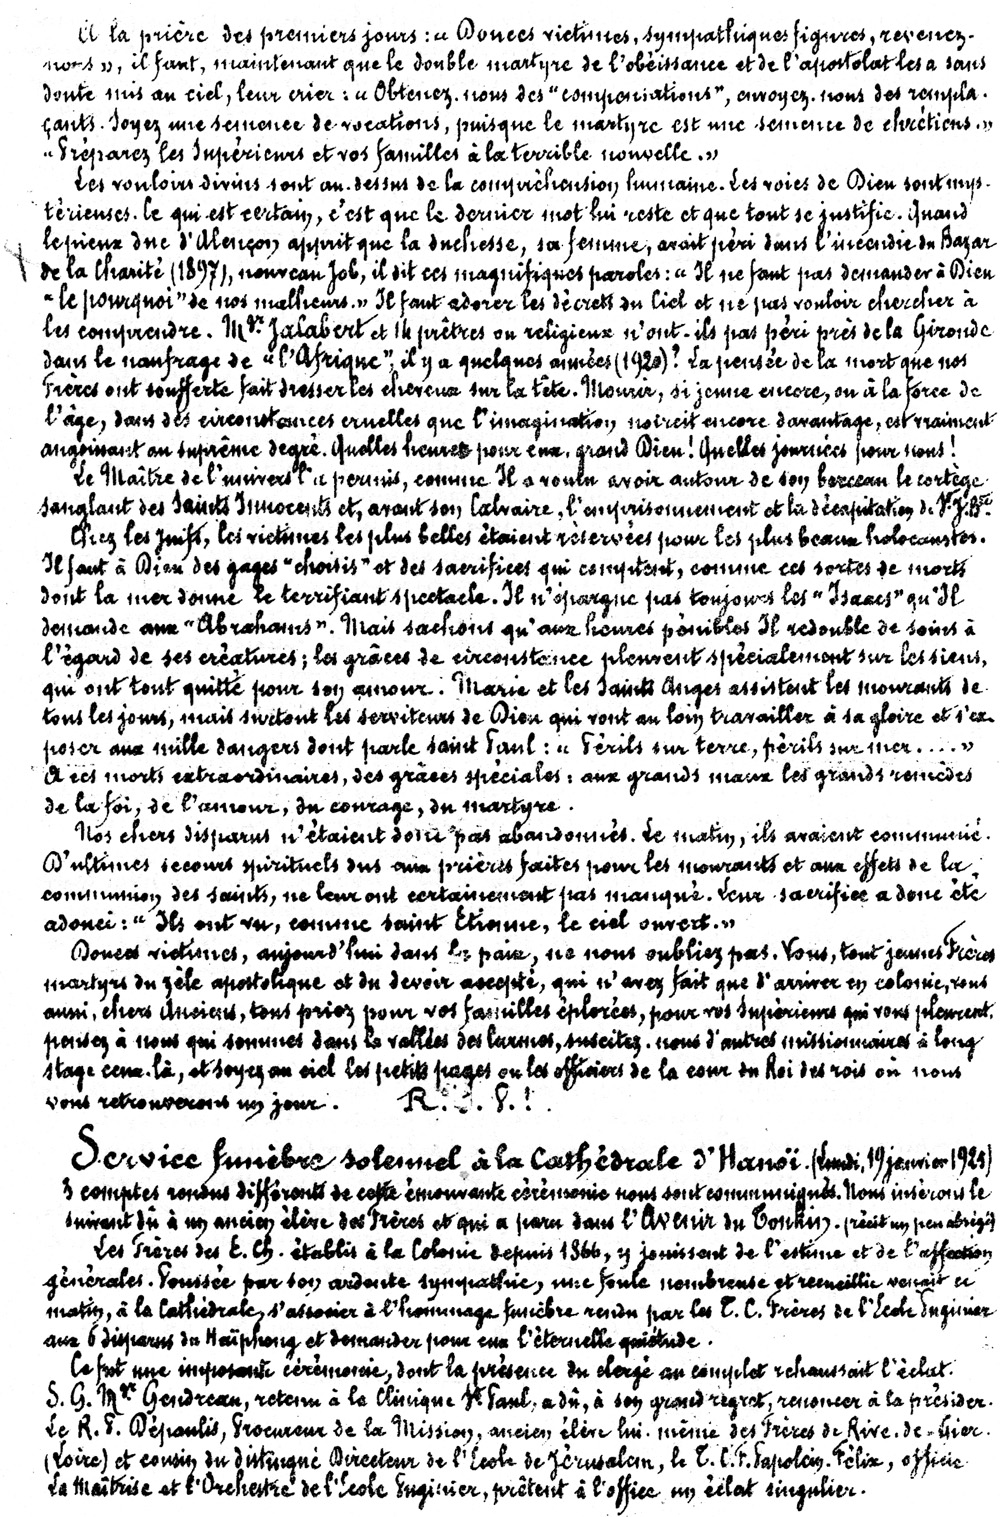 A la prière des premiers jours : « Douces victimes, sympathiques figures, revenez-
nous », il faut, maintenant que le double martyre de l'obéissance et de l'apostolat les a sans
doute mis au ciel, leur crier : « Obtenez-nous des "compensations", envoyez-nous des rempla-
çants. Soyez une semence de vocations, puisque le martyre est une semence de chrétiens. »
« Préparez les Supérieurs et vos familles à la terrible nouvelle. »
Les vouloirs divins sont au-dessus de la compréhension humaine. Les voies de Dieu sont mys-
térieuses. Ce qui est certain, c'est que le dernier mot lui reste et que tout se justifie. Quand
le pieux duc d'Alençon apprit que la duchesse, sa femme, avait péri dans l'incendie du Bazar
de la Charité (1897), nouveau Job, il dit ces magnifiques paroles : « Il ne faut pas demander à Dieu
"le pourquoi" de nos malheurs. » Il faut adorer les décrets du Ciel et ne pas vouloir chercher à
les comprendre. Mgr Jalabert et 14 prêtres ou religieux n'ont-ils pas péri près de la Gironde
dans le naufrage de "l'Afrique", il y a quelques années (1920) ? La pensée de la mort que nos
Frères ont soufferte fait dresser les cheveux sur la tête. Mourir, si jeune encore, ou à la force de
l'âge, dans des circonstances cruelles que l'imagination noircit encore davantage, est vraiment
angoissant au suprême degré. Quelles heures pour eux, grand Dieu ! Quelles journées pour nous !
Le Maître de l'univers l'a permis, comme Il a voulu avoir autour de son berceau le cortège
sanglant des Saints Innocents et, avant son Calvaire, l'emprisonnement et la décapitation de St J. Bte.
Chez les Juifs, les victimes les plus belles étaient réservées pour les plus beaux holocaustes.
Il faut à Dieu des gages "choisis" et des sacrifices qui comptent, comme ces sortes de morts
dont la mer donne le terrifiant spectacle. Il n'épargne pas toujours les "Isaacs" qu'Il
demande aux "Abrahams". Mais sachons qu'aux heures pénibles Il redouble de soins à
l'égard de ses créatures ; les grâces de circonstance pleuvent spécialement sur les siens,
qui ont tout quitté pour son amour. Marie et les Saints Anges assistent les mourants de
tous les jours, mais surtout les serviteurs de Dieu qui vont au loin travailler à sa gloire et s'ex-
poser aux mille dangers dont parle saint Paul : « Périls sur terre, périls sur mer.... »
A ces morts extraordinaires, des grâces spéciales : aux grands maux les grands remèdes
de la foi, de l'amour, du courage, du martyre.
Nos chers disparus n'étaient donc pas abandonnés. Le matin, ils avaient communié.
D'ultimes secours spirituels dus aux prières faites pour les mourants et aux effets de la
communion des saints, ne leur ont certainement pas manqué. Leur sacrifice a donc été
adouci : « Ils ont vu, comme saint Etienne, le ciel ouvert. »
Douces victimes, aujourd'hui dans la paix, ne nous oubliez pas. Vous, tout jeunes Frères
martyrs du zèle apostolique et du devoir accepté, qui n'avez fait que d'arriver en colonie, vous
aussi, chers Anciens, tous priez pour vos familles éplorées, pour vos Supérieurs qui vous pleurent,
pensez à nous qui sommes dans la vallées des larmes, suscitez-nous d'autres missionnaires à long
stage ceux-là, et soyez au ciel les petits pages ou les officiers de la cour du Roi des rois où nous
vous retrouverons un jour. R. I. P. !
Service funèbre solennel à la Cathédrale d'Hanoï. (Lundi, 19 janvier 1925)
3 comptes rendus différents de cette émouvante cérémonie nous sont communiqués. Nous insérons le
suivant dû à un ancien élève des Frères et qui a paru dans l'Avenir du Tonkin. (récit un peu abrégé)
Les Frères des E. Ch. établis à la Colonie depuis 1866, y jouissent de l'estime et de l'affection
générales. Poussée par son ardente sympathie, une foule nombreuse et recueillie venait ce
matin, à la Cathédrale, s'associer à l'hommage funèbre rendu par les T. C. Frères de l'Ecole Puginier
aux 6 disparus du Haïphong et demander pour eux l'éternelle quiétude.
Ce fut une imposante cérémonie, dont la présence du clergé au complet rehaussait l'éclat.
S. G. Mgr Gendreau, retenu à la Clinique St Paul, a dû, à son grand regret, renoncer à la présider.
Le R. P. Dépaulis, Procureur de la Mission, ancien élève lui-même des Frères de Rive-de-Gier
(Loire) et cousin du distingué Directeur de l'Ecole de Jérusalem, le T. C. F. Papolein-Félix, officie
La Maîtrise et l'Orchestre de l'Ecole Puginier, prêtent à l'office un éclat singulier.